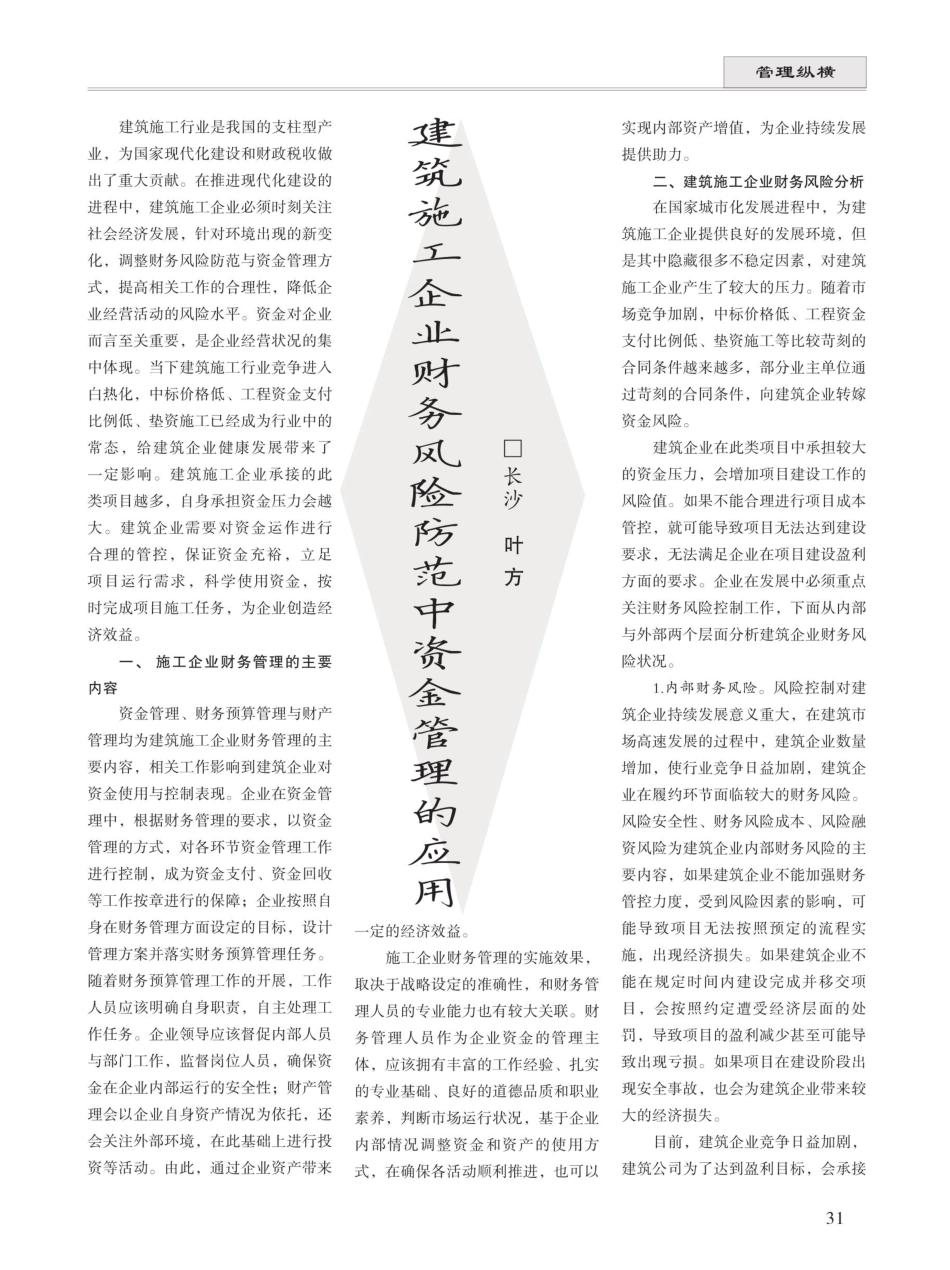 管理纵横
建筑施工企业财务风险防范中资金管理的应用
□长沙 叶方
建筑施工行业是我国的支柱型产
业，为国家现代化建设和财政税收做
出了重大贡献。在推进现代化建设的
进程中，建筑施工企业必须时刻关注
社会经济发展，针对环境出现的新变
化，调整财务风险防范与资金管理方
式，提高相关工作的合理性，降低企
业经营活动的风险水平。资金对企业
而言至关重要，是企业经营状况的集
中体现。当下建筑施工行业竞争进入
白热化，中标价格低、工程资金支付
比例低、垫资施工已经成为行业中的
常态，给建筑企业健康发展带来了
一定影响。建筑施工企业承接的此
类项目越多，自身承担资金压力会越
大。建筑企业需要对资金运作进行
合理的管控，保证资金充裕，立足
项目运行需求，科学使用资金，按
时完成项目施工任务，为企业创造经
济效益。
一、 施工企业财务管理的主要
内容
资金管理、财务预算管理与财产
管理均为建筑施工企业财务管理的主
要内容，相关工作影响到建筑企业对
资金使用与控制表现。企业在资金管
理中，根据财务管理的要求，以资金
管理的方式，对各环节资金管理工作
进行控制，成为资金支付、资金回收
等工作按章进行的保障；企业按照自
身在财务管理方面设定的目标，设计
管理方案并落实财务预算管理任务。
随着财务预算管理工作的开展，工作
人员应该明确自身职责，自主处理工
作任务。企业领导应该督促内部人员
与部门工作，监督岗位人员，确保资
金在企业内部运行的安全性；财产管
理会以企业自身资产情况为依托，还
会关注外部环境，在此基础上进行投
资等活动。由此，通过企业资产带来
一定的经济效益。
施工企业财务管理的实施效果，
取决于战略设定的准确性，和财务管
理人员的专业能力也有较大关联。财
务管理人员作为企业资金的管理主
体，应该拥有丰富的工作经验、扎实
的专业基础、良好的道德品质和职业
素养，判断市场运行状况，基于企业
内部情况调整资金和资产的使用方
式，在确保各活动顺利推进，也可以
实现内部资产增值，为企业持续发展
提供助力。
二、建筑施工企业财务风险分析
在国家城市化发展进程中，为建
筑施工企业提供良好的发展环境，但
是其中隐藏很多不稳定因素，对建筑
施工企业产生了较大的压力。随着市
场竞争加剧，中标价格低、工程资金
支付比例低、垫资施工等比较苛刻的
合同条件越来越多，部分业主单位通
过苛刻的合同条件，向建筑企业转嫁
资金风险。
建筑企业在此类项目中承担较大
的资金压力，会增加项目建设工作的
风险值。如果不能合理进行项目成本
管控，就可能导致项目无法达到建设
要求，无法满足企业在项目建设盈利
方面的要求。企业在发展中必须重点
关注财务风险控制工作，下面从内部
与外部两个层面分析建筑企业财务风
险状况。
1.内部财务风险。风险控制对建
筑企业持续发展意义重大，在建筑市
场高速发展的过程中，建筑企业数量
增加，使行业竞争日益加剧，建筑企
业在履约环节面临较大的财务风险。
风险安全性、财务风险成本、风险融
资风险为建筑企业内部财务风险的主
要内容，如果建筑企业不能加强财务
管控力度，受到风险因素的影响，可
能导致项目无法按照预定的流程实
施，出现经济损失。如果建筑企业不
能在规定时间内建设完成并移交项
目，会按照约定遭受经济层面的处
罚，导致项目的盈利减少甚至可能导
致出现亏损。如果项目在建设阶段出
现安全事故，也会为建筑企业带来较
大的经济损失。
目前，建筑企业竞争日益加剧，
建筑公司为了达到盈利目标，会承接
31